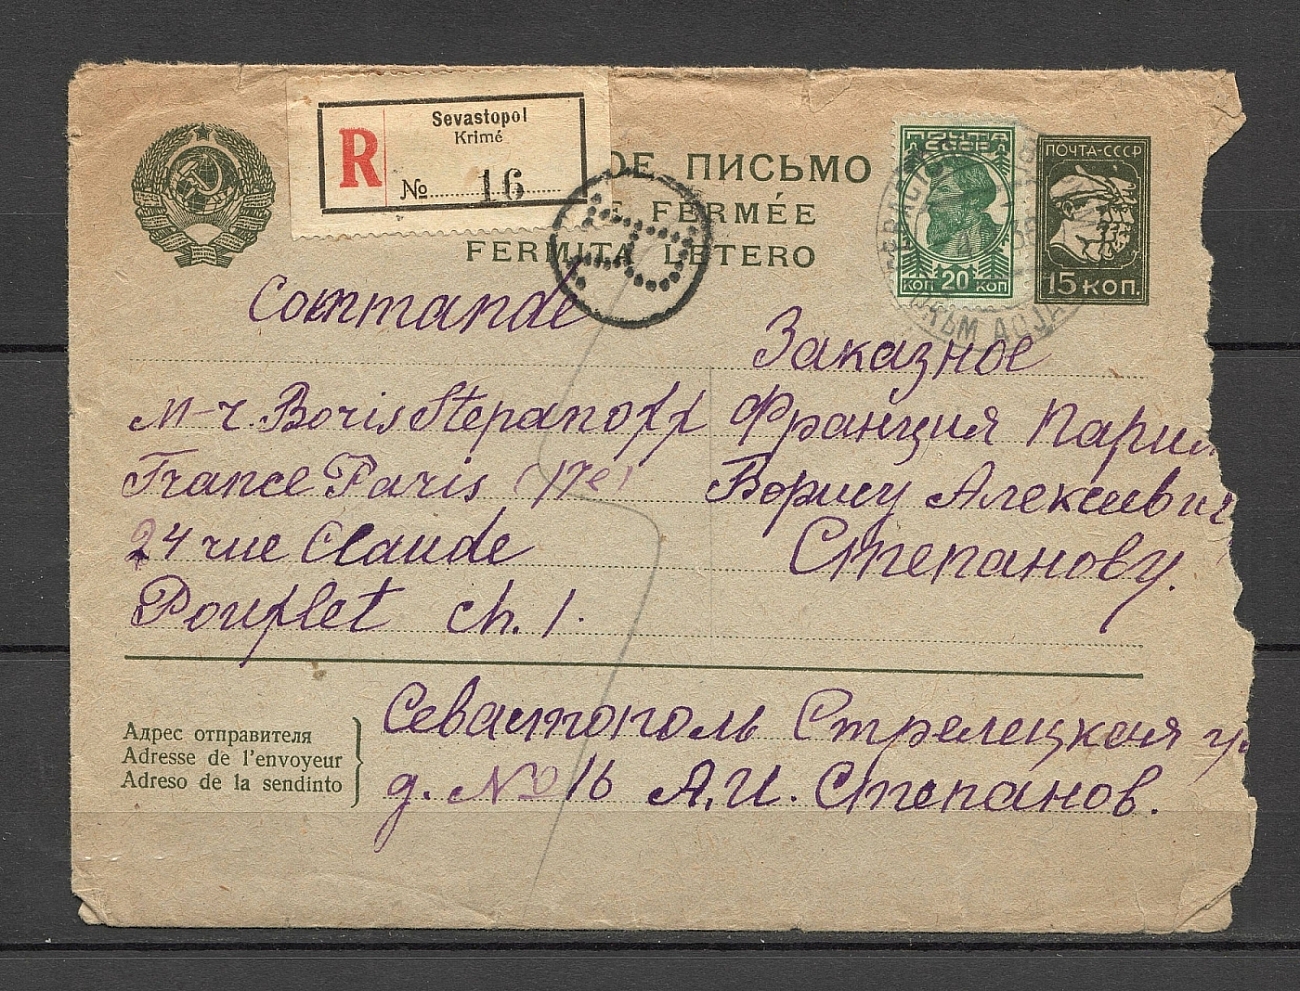 Sevastopol
Krimé
R
№ 16
ОЕ ПИСЬМО
E FERMÉE
FERMITA LETERO
ПОЧТА
СССР
20
КОП КОП
ПОЧТА-СССР
15 КОП.
Commande
Заказное
M-r. Boris Stepanoff
Франция Пари
France Paris (17e)
Борису Алексеевич
24 rue Claude
Степанову.
Pouflet ch. 1.
Адрес отправителя
Adresse de l'envoyeur
Adreso de la sendinto
Севастополь Стрелецкая ул
д. №16 А.И. Степанов.